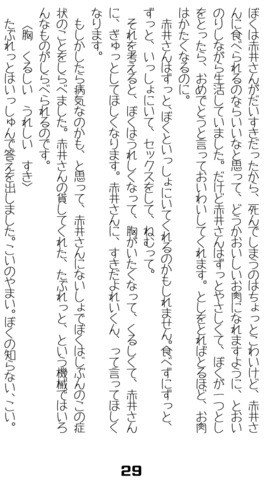 ぼくは赤井さんがだいすきだったから、死んでしまうのはちょっとこわいけど、赤井さ
んに食べられるのならいいなと思って、どうかおいしいお肉になれますように、とおい
のりしながら生活していました。だけど赤井さんはずっとやさしくて、ぼくが一つとし
をとったら、おめでとうと言っておいわいしてくれます。としをとればとるほど、お肉
はかたくなるのに。
赤井さんはずっと、ぼくといっしょにいてくれるのかもしれません。食べずにずっと、
ずっと、いっしょにいて、セックスをして、ねむって。
それを考えると、ぼくはうれしくなって、胸がいたくなって、くるしくて、赤井さん
に、ぎゅっとしてほしくなります。赤井さんに、すきだよれいくん、って言ってほしく
なります。
もしかしたら病気なのかも、と思って、赤井さんにないしょでぼくはじぶんのこの症
状のことをしらべました。赤井さんの貸してくれた、たぶれっと、という機械ではいろ
んなものがしらべられるのです。
〈胸　くるしい　うれしい　すき〉
たぶれっとはいっしゅんで答えを出しました。こいのやまい。ぼくの知らない、こい。
29